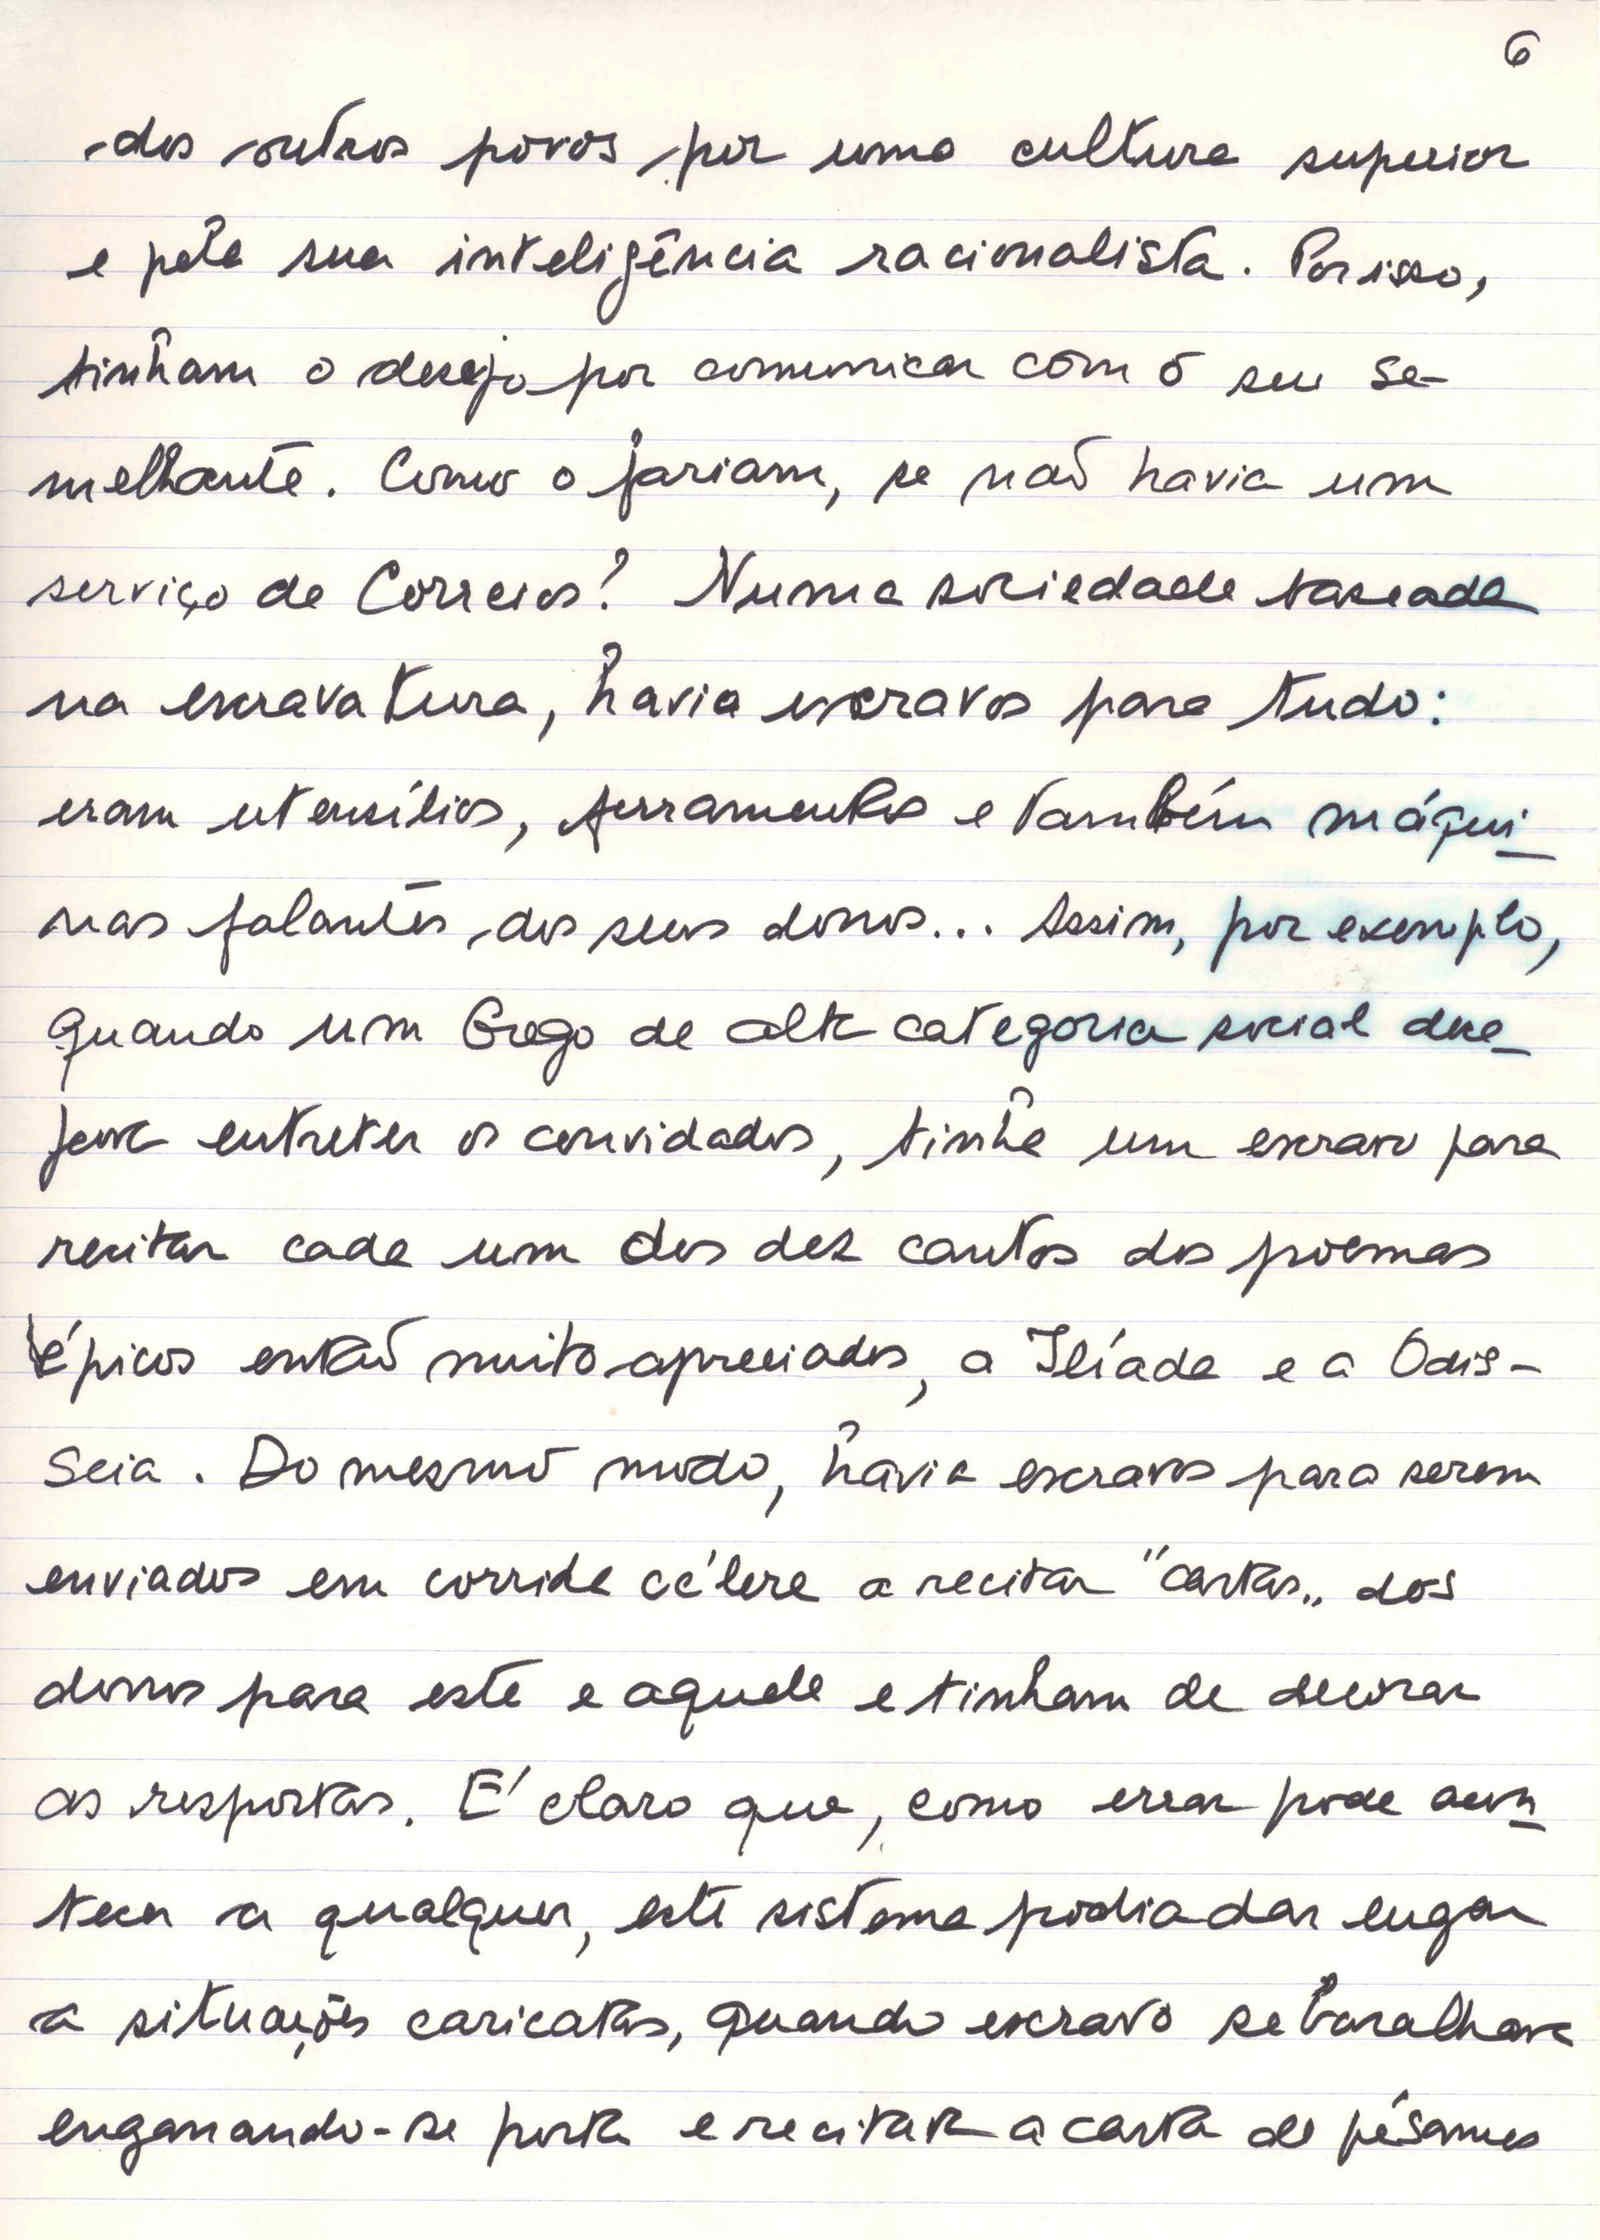 6
dos outros povos por uma cultura superior
e pela sua inteligência racionalista. Por isso,
tinham o desejo por comunicar com o seu se-
melhante. Como o fariam, se não havia um
serviço de Correios? Numa sociedade baseada
na escravatura, havia escravos para tudo:
eram utensílios, ferramentas e também máqui-
nas falantes dos seus donos... Assim, por exemplo,
quando um Grego de alta categoria social dese-
java entreter os convidados, tinha um escravo para
recitar cada um dos dez cantos dos poemas
épicos então muito apreciados, a Ilíada e a Odis-
seia. Do mesmo modo, havia escravos para serem
enviados em corrida célere a recitar "cartas" dos
donos para este e aquele e tinham de decorar
as respostas. É claro que, como errar pode acon-
tecer a qualquer, este sistema podia dar lugar
a situações caricatas, quando escravo se baralhava
enganando-se porta e recitava a carta de pêsames